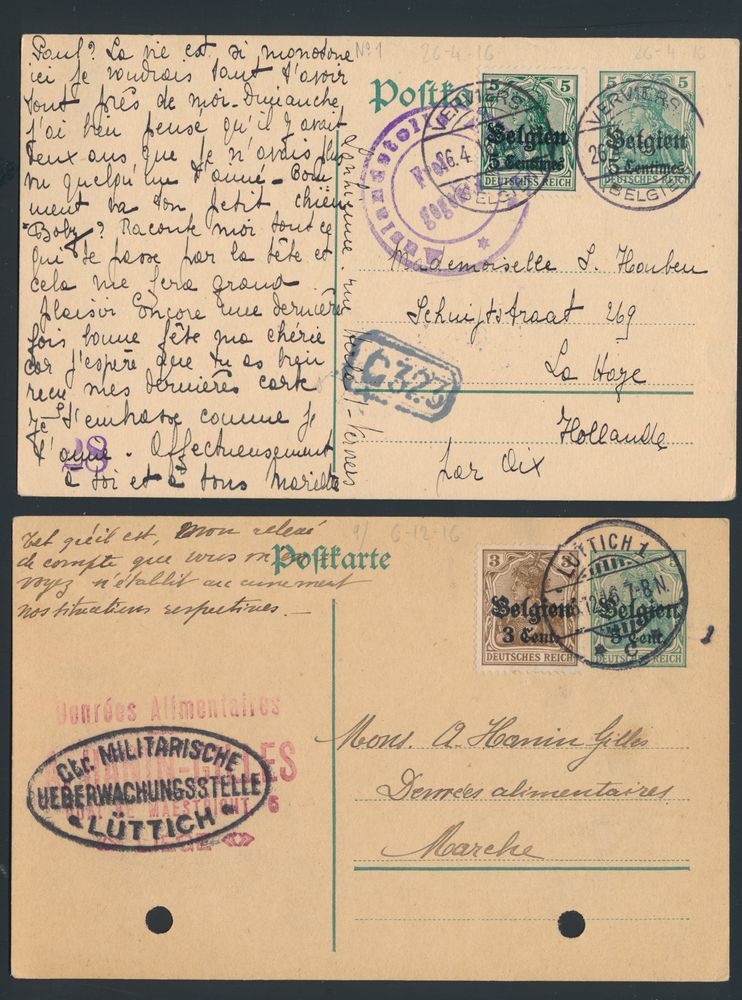 Paul? La vie est si monotone
ici je voudrais tant t'avoir
tout près de moi. Dimanche
j'ai bien pensé qu'il y avait
deux ans que je n'avais plus
vu quelqu'un d'aimé. Com
ment va ton petit chien
"Boby"? Raconte moi tout ce
qui se passe par la tête et
cela me fera grand
plaisir Encore une dernière
fois bonne fête ma chérie
car j'espère que tu as bien
reçu mes dernières carte
Je t'embrasse comme je
t'aime. Affectueusement
à toi et à tous
28
No 1 26-4-16 26-4-16
Postka
5 5
Belgien
5 Centimes
DEUTSCHES REICH
5 5
Belgien
5 Centimes
DEUTSCHES REICH
VERVIERS
26.4
BELG
VERVIERS
BELGIE
Auslandstel
gegeben
Mademoiselle S. Houben
Schuijtstraat 269
La Haye
Hollande
par Aix
C323
Tel qu'il est, mon relevé
de compte que vous m'en
voyez n'établit aucunement
nos situations respectives. —
6-12-16
Postkarte
3
Belgien
3 Cent.
DEUTSCHES REICH
Belgien
3 Cent.
DEUTSCHES REICH
LÜTTICH 1
6.12.16.7-8N.
* c
Denrées Alimentaires
A. HANIN-GILLES
MAESTRICHT 6
LIEGE
Ctr. MILITARISCHE
UEBERWACHUNGSSTELLE
LÜTTICH
Mons. A. Hanin Gilles
Denrées alimentaires
Marche